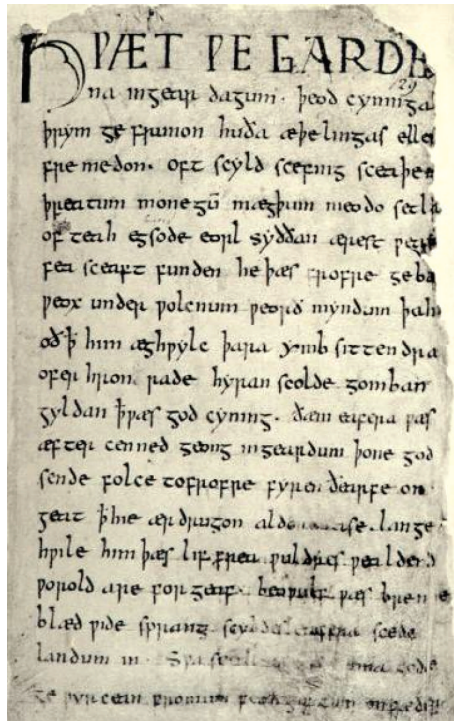 HǷÆT ǷE GARDE
129
na ingear dagum. þeod cyninga
þrym ge frunon huða æþelingas elle
fre medon. oft scyld scefing sceaþe
þreatum monegū mægþum meodo setla
of teah egsode eorl syððan ærest ƿear
fea sceaft funden he þæs frofre geba
ƿeox under ƿolcnum ƿeorð myndum þah
oð ꝥ him æghƿylc þara ymb sittendra
ofer hron rade hyran scolde gomban
gyldan ꝥ ƿæs god cyning. ðæm eafera ƿæs
æfter cenned geong ingeardum þone god
sende folce tofrofre fyren ðearfe on
geat ꝥ hie ær drugon aldor ase. lange
hƿile him þæs lif frea ƿuldres ƿealdend
ƿorold are for geaf. beoƿulf ƿæs breme
blæd ƿide sprang scyldes eafera scede
landum in. Sƿa sceal guma gode
ge ƿyrcean fromum feoh giftum